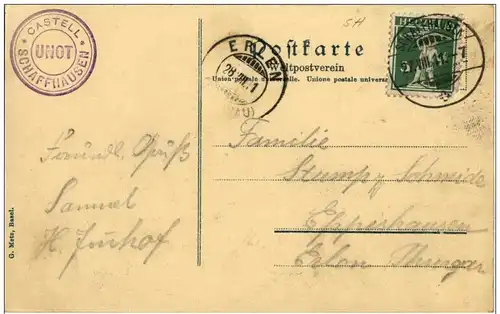 CASTELL
UNOT
SCHAFFHAUSEN
SH
Postkarte
Weltpostverein
Union postale universelle. Unione postale univers
ERLEN
28.III.1
SCHAFFHAUSEN
HELVETIA
Freundl. Gruß
Samuel
H. Imhof
Familie
Stump z. Schmiede
Eppishausen
Erlen Thurgau
G. Metz, Basel.